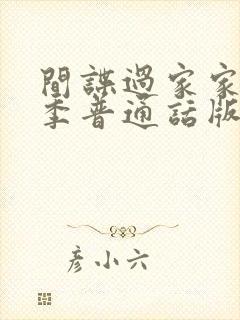 間諜過家家
季普通話版
彦小六